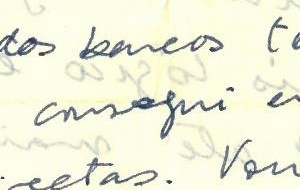 dos bancos ta
consegui e
retas. Vou